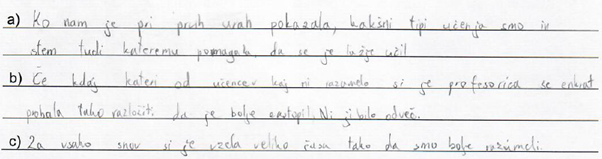 a) Ko nam je pri prvih urah pokazala, kakšni tipi učenja smo in
stem tudi kateremu pomagala, da se je lažje učil
b) Če kdaj kateri od učencev kaj ni razumelo si je profesorica še enkrat
probala tako razložit. da je bolje zastopil. Ni ji bilo odveč.
c) Za vsako snov si je vzela veliko časa tako da smo bolje razumeli.